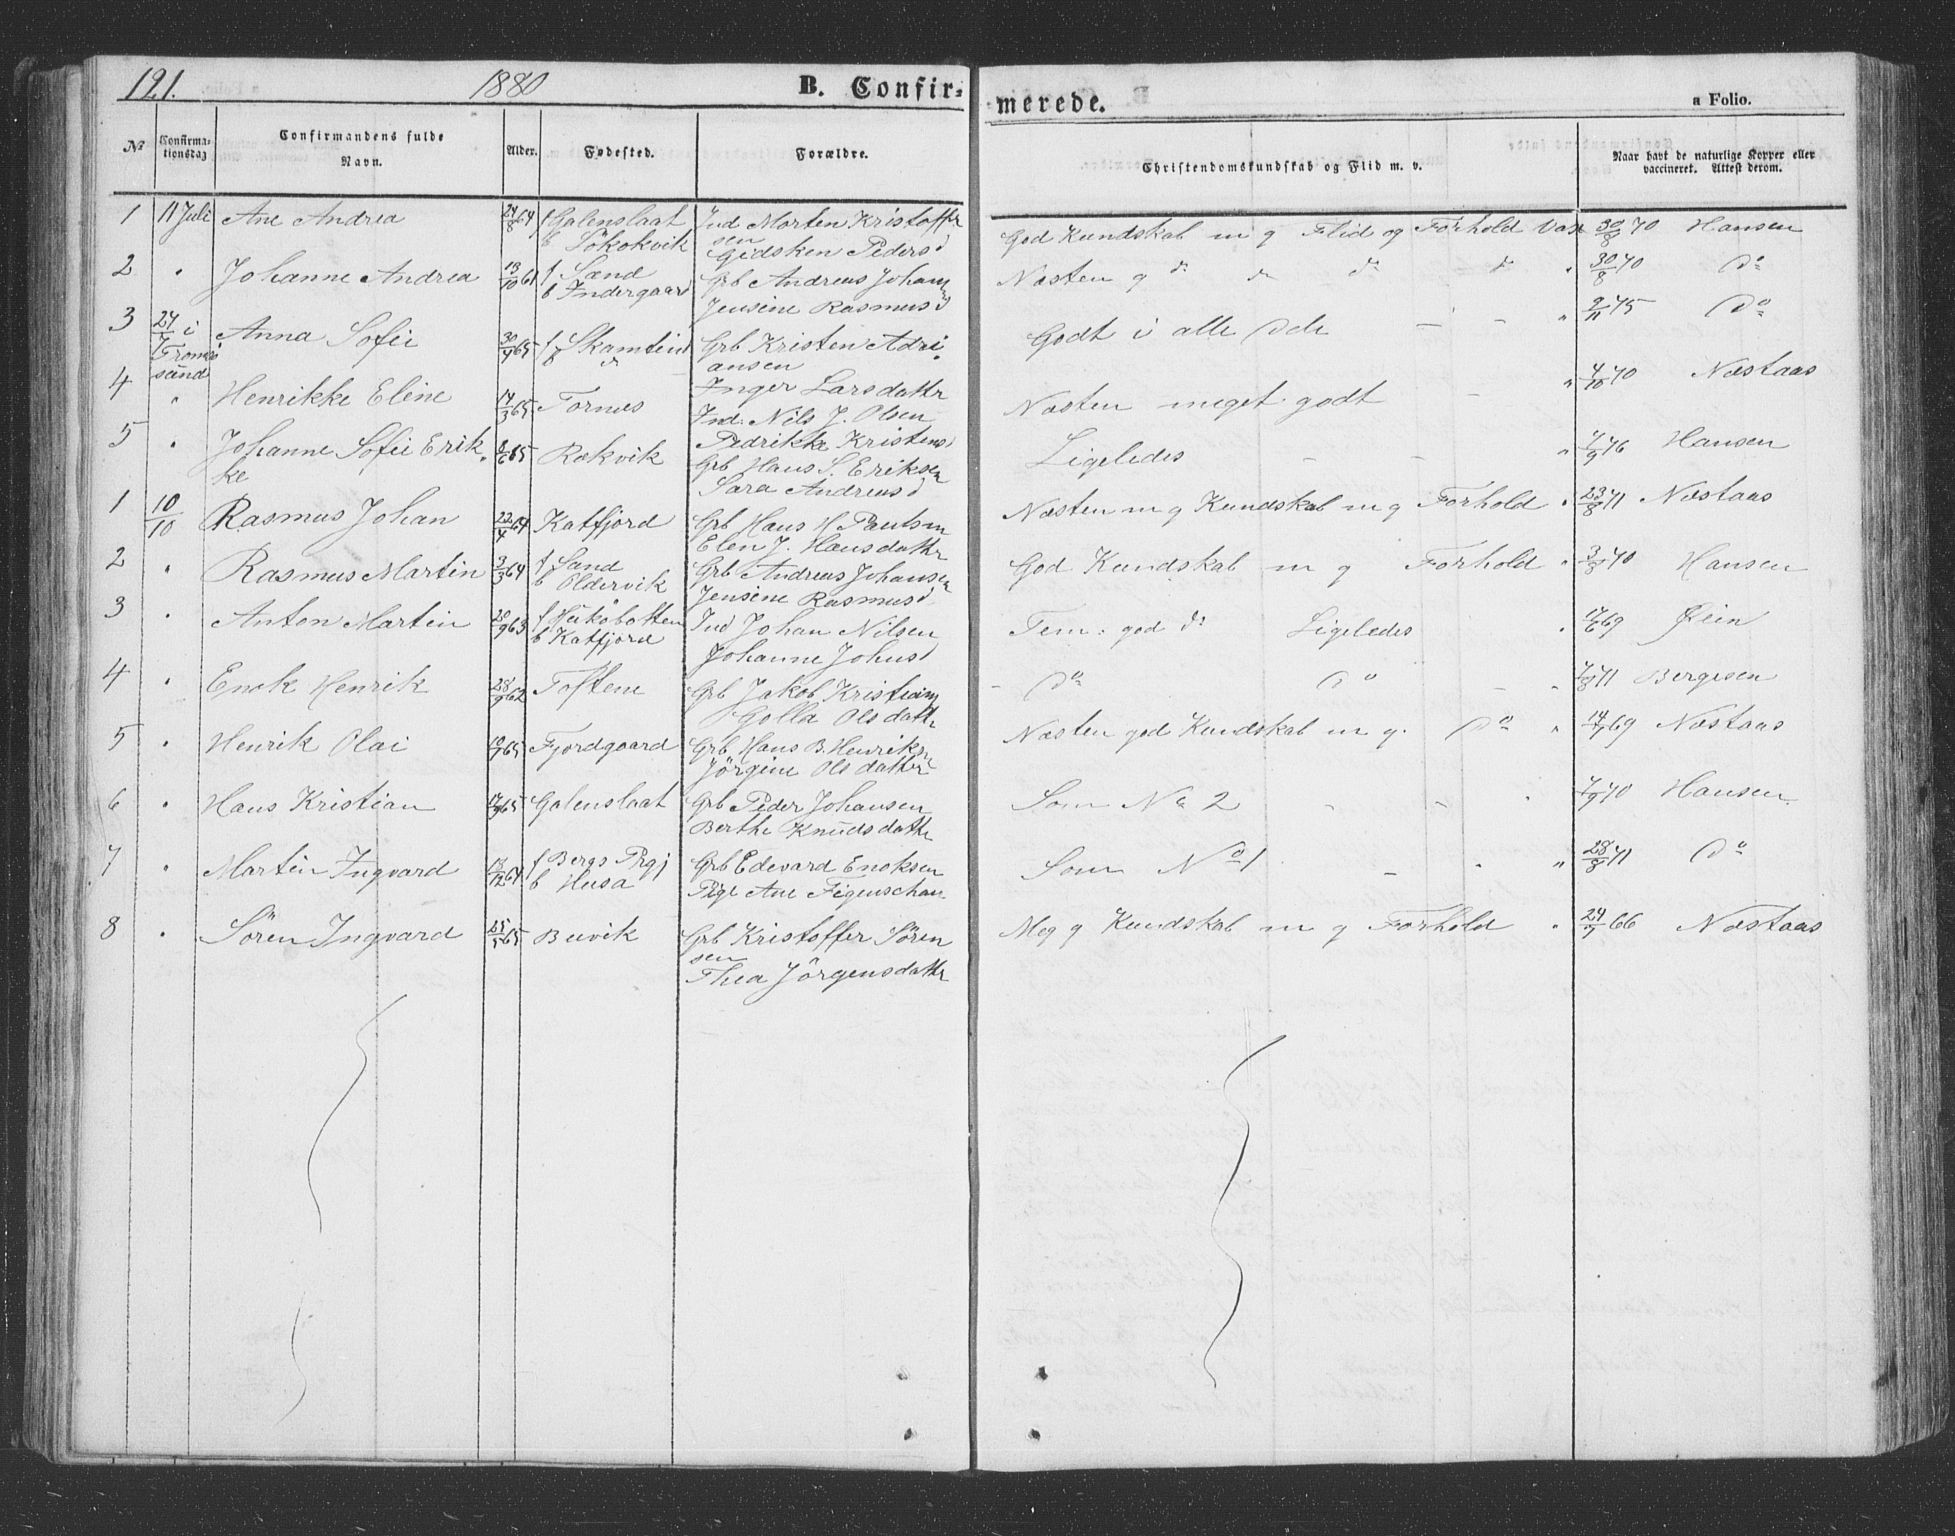 121. 1880 B. Confir-
merede. a Folio.
No Confirma-tionsdag Confirmandens fulde Navn. Alder. Fødested. Forældre. Christendomskundskab og Flid m. v. Naar havt de naturlige Kopper eller vaccineret. Attest derom.
1 11 Juli Ane Andrea 24/8 64 f Galenslaat Ind Morten Kristoffer God Kundskab m g Flid og Forhold Vac 30/8 70 Hansen
b Sökokvik sen Gidsken Pedersd
2 " Johanne Andrea 13/10 61 f Sand Grb Andreas Johan Næsten g do do do " 30/8 70 Do
b Indergaard Jensine Rasmusd
3 24/7 i Anna Sofie 30/4 65 f Skamtind Grb Kristen Adri Godt i alle Dele - - " 2/11 75 Do
Tromsö sund b ansen Inger Larsdattr
4 " Henrikke Eline 14/3 65 Tornes Ind. Nils J. Olsen Næsten meget godt - " 4/10 70 Næstaas
Pedrikke Kristensd
5 " Johanne Sofie Erik 65 Rækvik Grb Hans S. Eriksen Ligeledes - - " 4/9 76 Hansen
ke Sara Andreasd
1 10/10 Rasmus Johan 22/4 64 Katfjord Grb Hans H Paulsen Næsten m g Kundskab m g Forhold " 23/8 71 Næstaas
Elen J. Hansdattr
2 " Rasmus Martin 3/3 64 f Sand Grb Andreas Johansen God Kundskab m g Forhold " 3/8 70 Hansen
b Oldervik Jensine Rasmusd
3 " Anton Martin 20/9 63 f Hakobotten Ind Johan Nilsen Tem: god do Ligeledes " 17/6 69
b Katfjord Johanne Johnsd
4 " Enok Henrik 28/9 62 Toftene Grb Jakob Kristian - Do Do - " 7/8 71 Bergesen
Golla Olsdattr
5 " Henrik Olai 65 Fjordgaard Grb Hans B. Henriksn Næsten god Kundskab m g. Do " 14/7 69 Næstaas
Jörgine Olsdatter
6 " Hans Kristian 17/9 65 Galenslaat Grb Peder Johansen Som No 2 - - " 7/9 70 Hansen
Berthe Knudsdattr
7 " Martin Ingvard 13/12 64 f Bergs Prgj Grb Edevard Enoksen Som No 1 - " " 28/8 71 Do
b Husa Pige Ane Figenschau
8 " Sören Ingvard 25/5 65 Buvik Grb Kristoffer Sören Meg g Kundskab m g Forhold " 24/7 66 Næstaas
sen
Thea Jörgensdattr